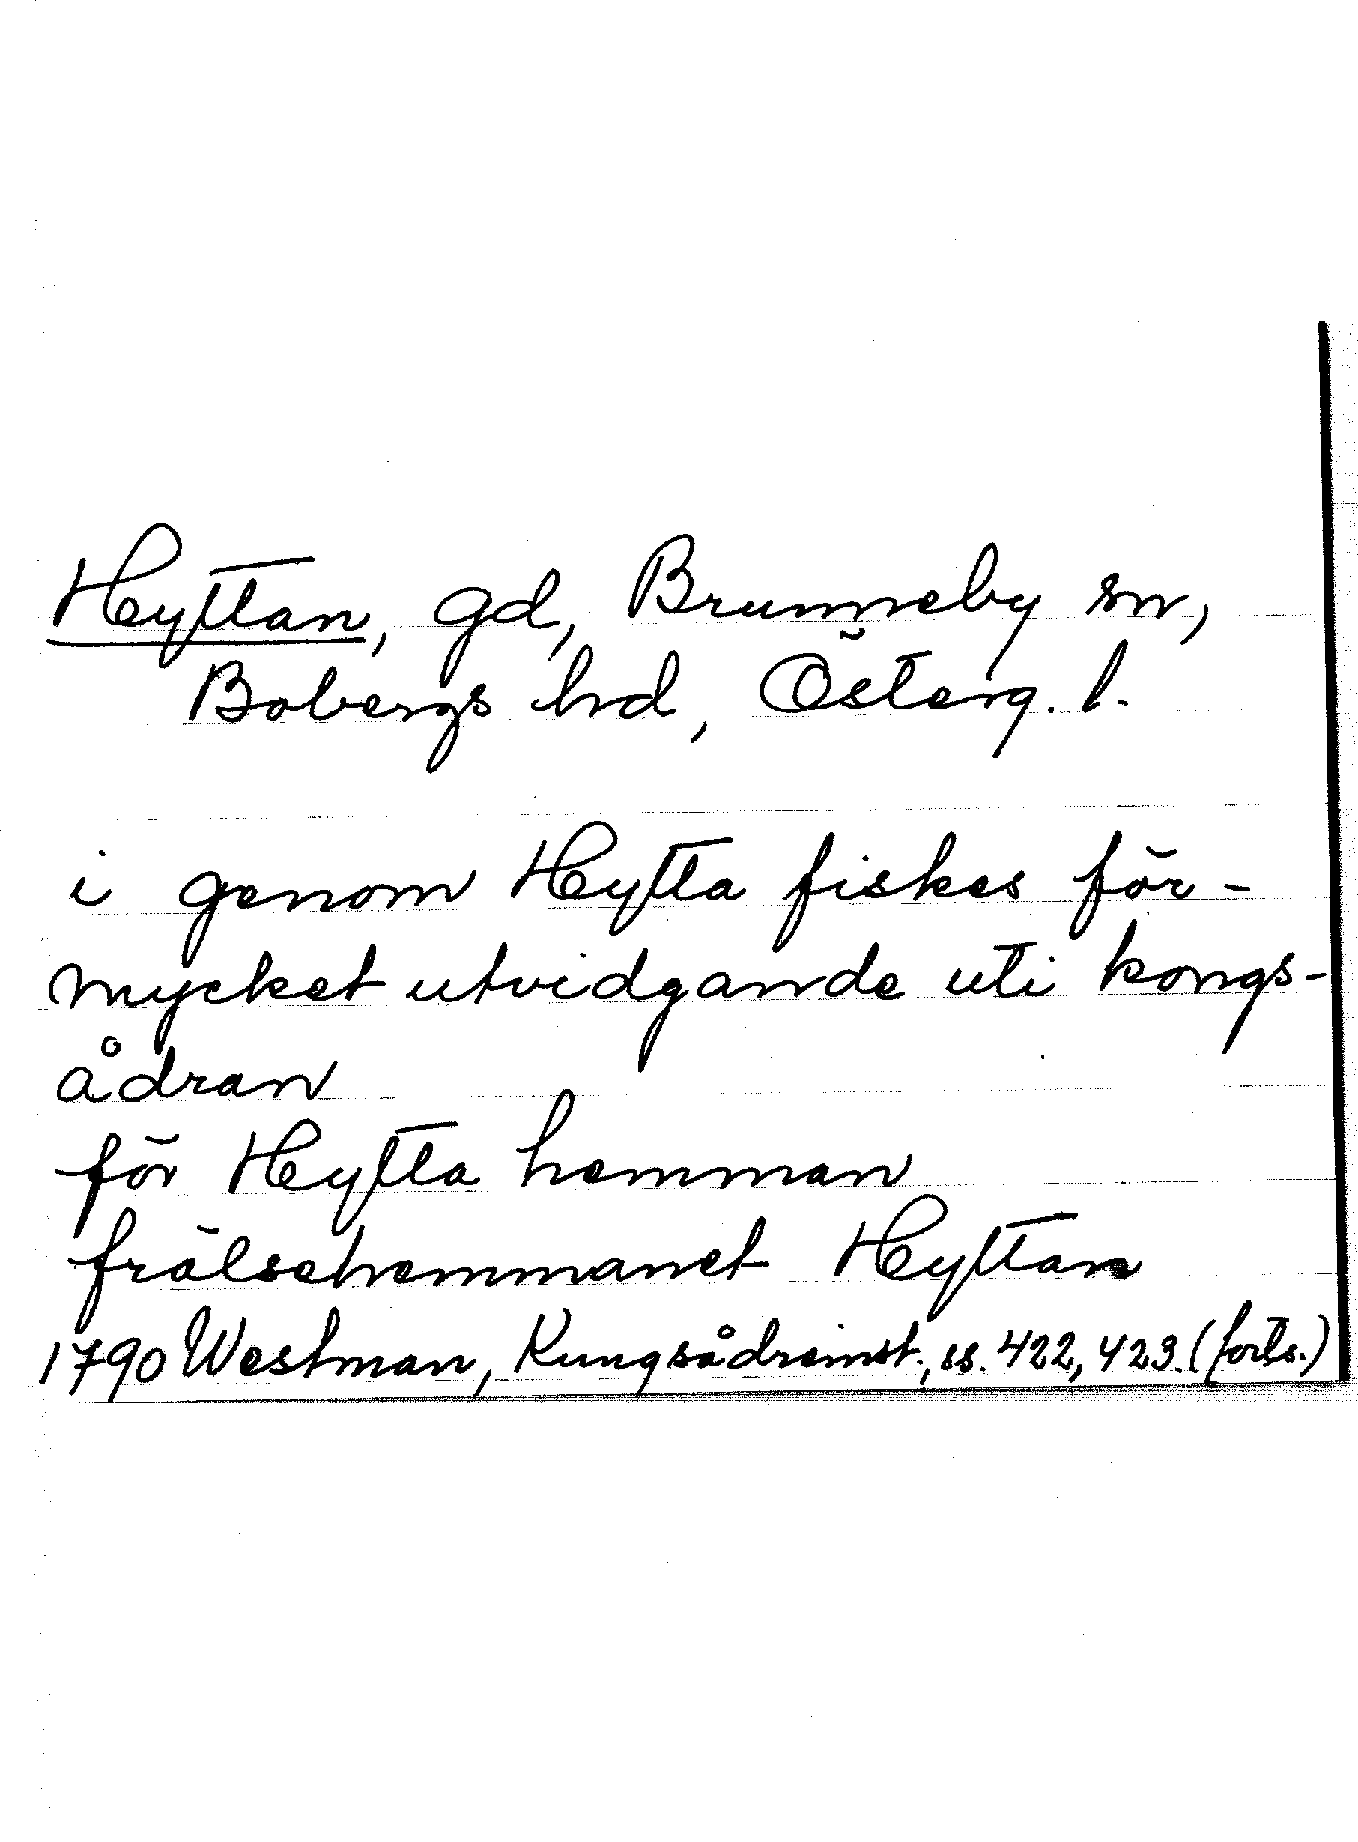 Hyttan, gd, Brunneby sn,
Bobergs hd, Österg. l.
i genom Hytta fiskes för-
mycket utvidgande uti kongs-
ådran
för Hytta hemman
frälsehemmanet Hyttan
1790 Westman, Kungsådreinst., s. 422, 423. (forts.)